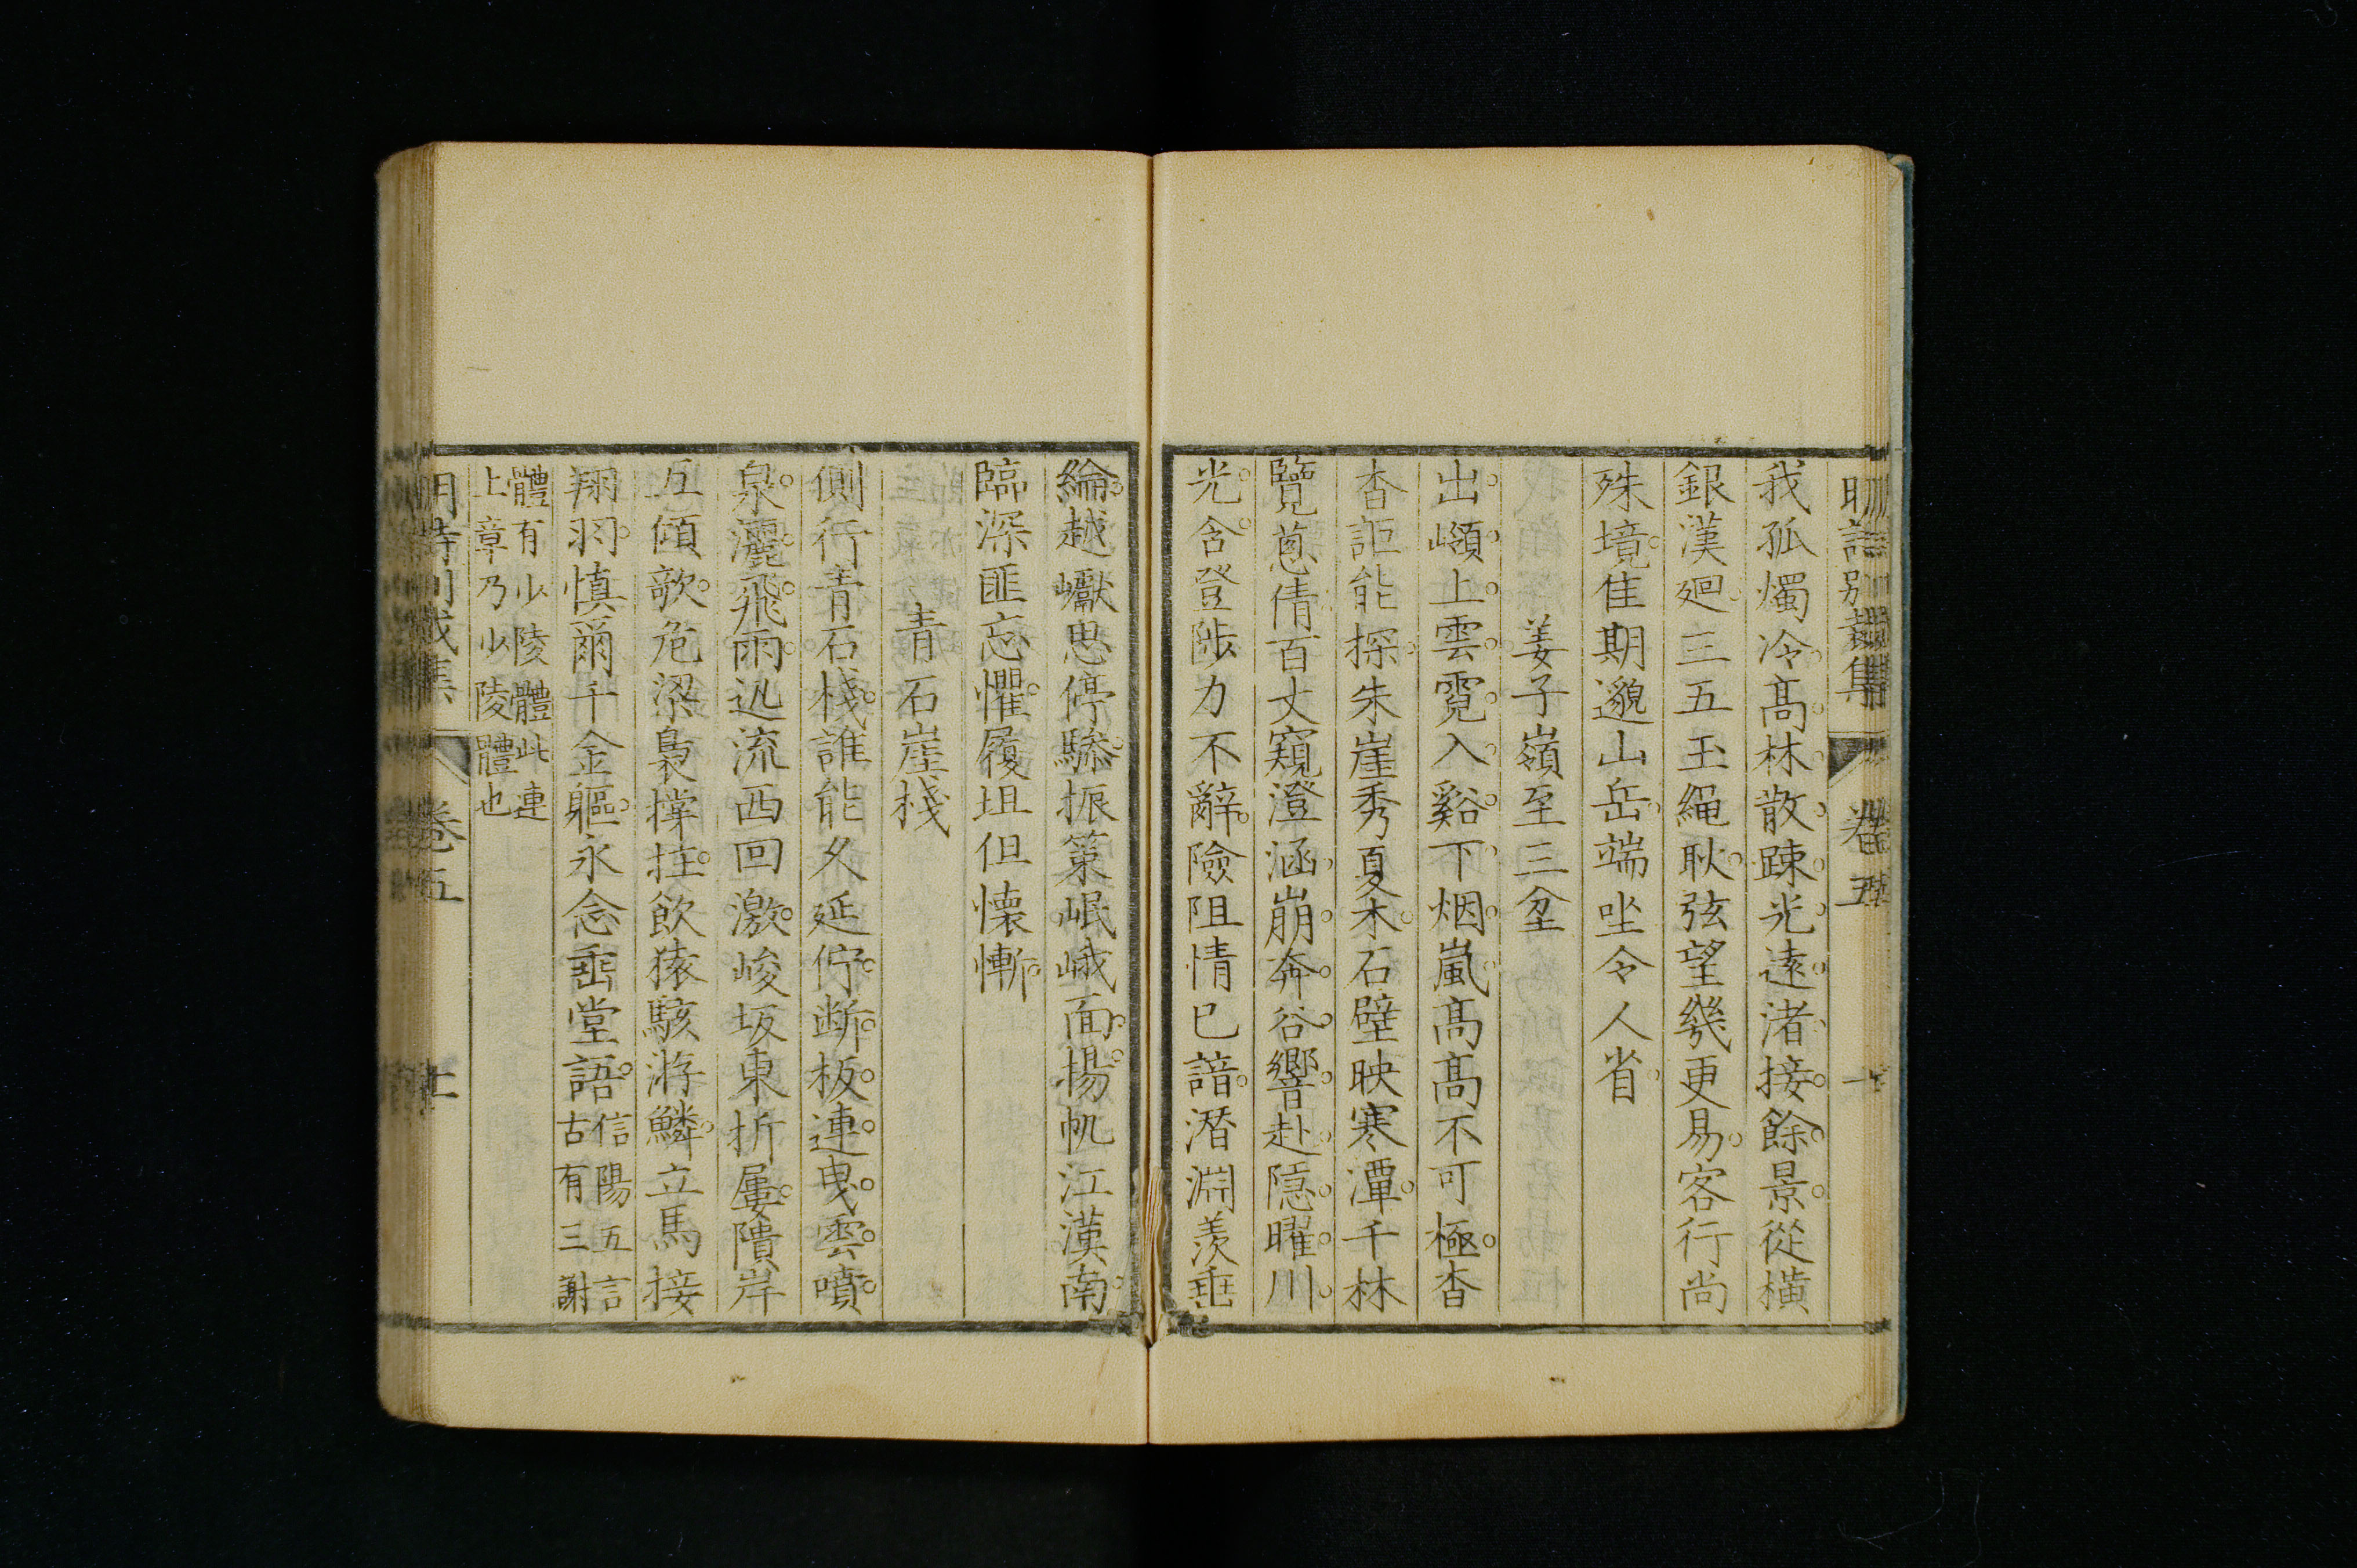 明詩別裁集 卷五
我孤燭冷高林散踈光遠渚接餘景從橫
銀漢廻三五玉繩耿弦望幾更易客行尚
殊境佳期邈山岳端坐令人省
姜子嶺至三坌
出巔上雲霓入谿下烟嵐高高不可極杳
杳詎能探朱崖秀夏木石壁映寒潭千林
覽蔥倩百丈窺澄涵崩奔谷響赴隱曜川
光含登陟力不辭險阻情已諳潛淵羨垂
綸越巘思停驂振策岷峨面揚帆江漢南
臨深匪忘懼履坦但懷慚
青石崖棧
側行青石棧誰能久延佇斷板連曳雲噴
泉灑飛雨迅流西回激峻坂東折屢隤岸
互傾欹危梁裊撐拄飲猿駭游鱗立馬接
翔羽慎爾千金軀永念垂堂語信陽五言
古有三謝
體有少陵體此連
上章乃少陵體也
明詩別裁集 卷五